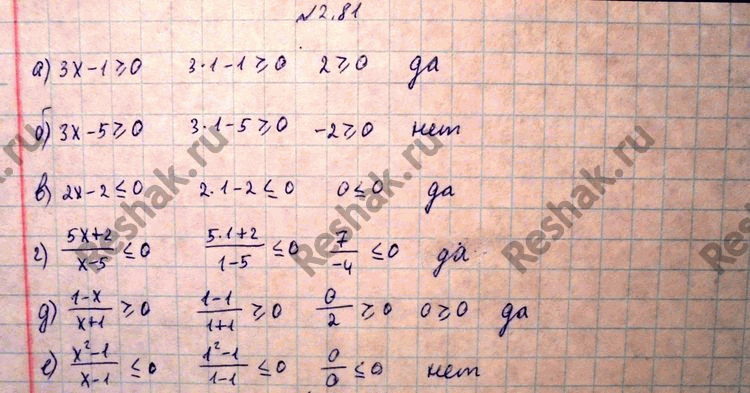 №2.81
а) 3x-1≥0 3·1-1≥0 2≥0 да
б) 3x-5≥0 3·1-5≥0 -2≥0 нет
в) 2x-2≤0 2·1-2≤0 0≤0 да
г) (5x+2)/(x-5) ≤0 (5·1+2)/(1-5) ≤0 7/(-4) ≤0 да
д) (1-x)/(x+1) ≥0 (1-1)/(1+1) ≥0 0/2 ≥0 0≥0 да
е) (x²-1)/(x-1) ≤0 (1²-1)/(1-1) ≤0 0/0 ≤0 нет
Reshak.ru
Reshak.ru
Reshak.ru